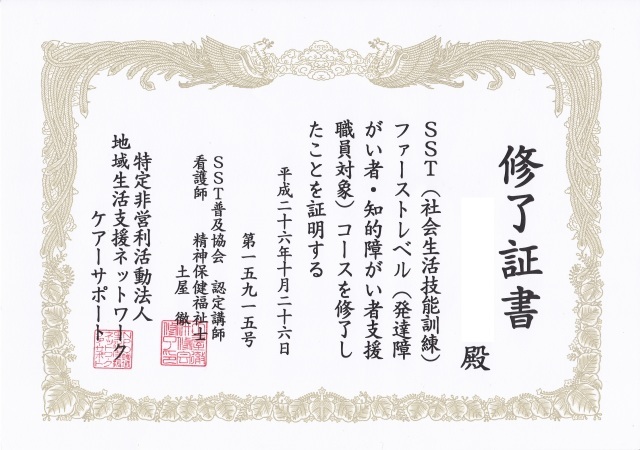 修了証書
殿
SST（社会生活技能訓練）
ファーストレベル（発達障
がい者・知的障がい者支援
職員対象）コースを修了し
たことを証明する
平成二十六年十月二十六日
第一五九一五号
SST普及協会　認定講師
看護師　精神保健福祉士
土屋　徹
特定非営利活動法人
地域生活支援ネットワーク
ケアーサポート